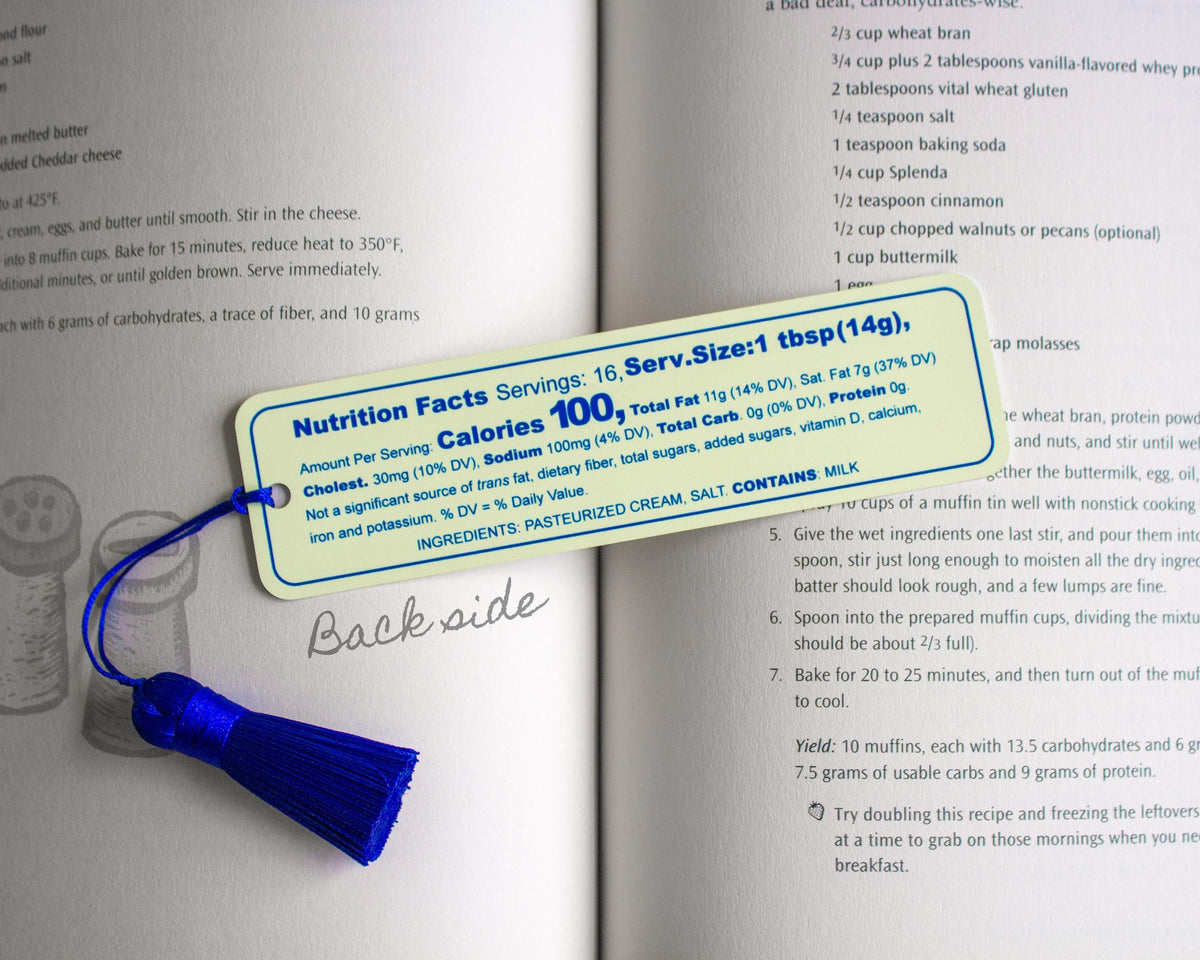 flour
salt
melted butter
Cheddar cheese
at 425°F.
cream, eggs, and butter until smooth. Stir in the cheese.
into 8 muffin cups. Bake for 15 minutes, reduce heat to 350°F,
minutes, or until golden brown. Serve immediately.
with 6 grams of carbohydrates, a trace of fiber, and 10 grams
Nutrition Facts Servings: 16, Serv.Size:1 tbsp(14g),
Amount Per Serving: Calories 100, Total Fat 11g (14% DV), Sat. Fat 7g (37% DV)
Cholest. 30mg (10% DV), Sodium 100mg (4% DV), Total Carb. 0g (0% DV), Protein 0g.
Not a significant source of trans fat, dietary fiber, total sugars, added sugars, vitamin D, calcium,
iron and potassium. % DV = % Daily Value.
INGREDIENTS: PASTEURIZED CREAM, SALT. CONTAINS: MILK
Back side
a bad deal, carbohydrates-wise.
2/3 cup wheat bran
3/4 cup plus 2 tablespoons vanilla-flavored whey
2 tablespoons vital wheat gluten
1/4 teaspoon salt
1 teaspoon baking soda
1/4 cup Splenda
1/2 teaspoon cinnamon
1/2 cup chopped walnuts or pecans (optional)
1 cup buttermilk
1 egg
molasses
wheat bran, protein
and nuts, and stir until
the buttermilk, egg, oil,
10 cups of a muffin tin well with nonstick cooking
5. Give the wet ingredients one last stir, and pour them
spoon, stir just long enough to moisten all the dry
batter should look rough, and a few lumps are fine.
6. Spoon into the prepared muffin cups, dividing the
should be about 2/3 full).
7. Bake for 20 to 25 minutes, and then turn out of the
to cool.
Yield: 10 muffins, each with 13.5 carbohydrates and 6
7.5 grams of usable carbs and 9 grams of protein.
Try doubling this recipe and freezing the leftovers
at a time to grab on those mornings when you
breakfast.